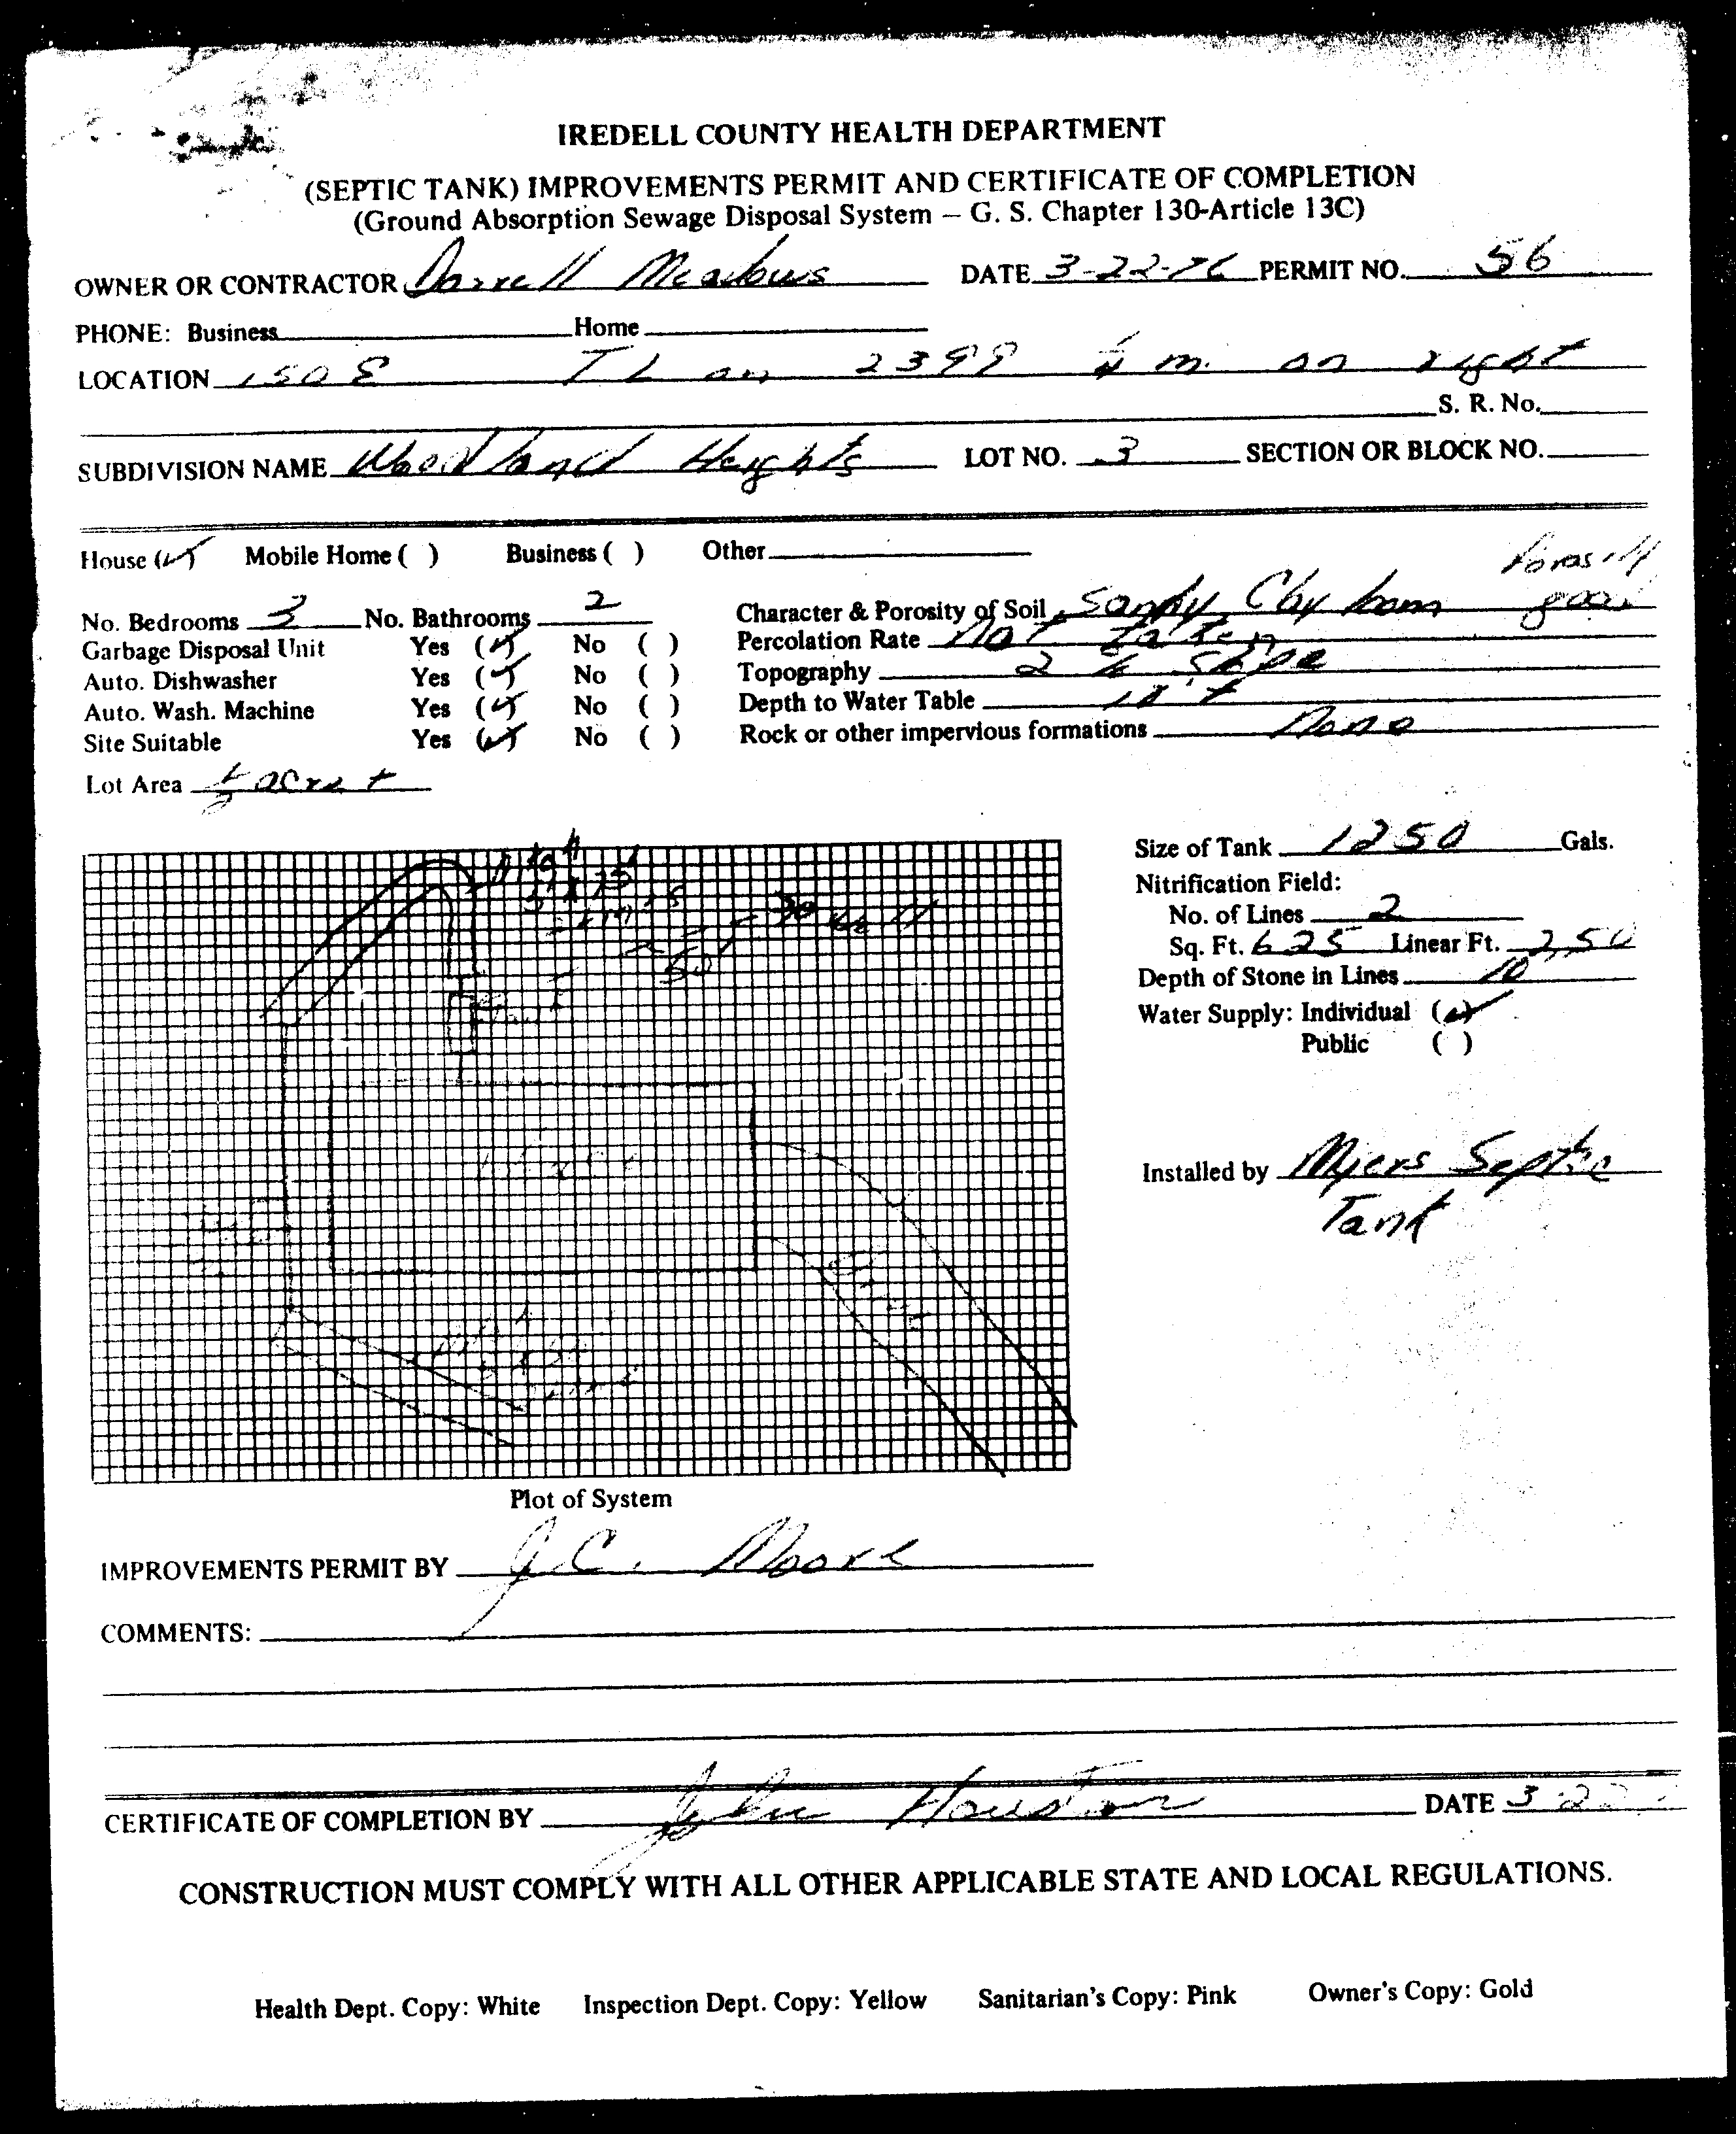 IREDELL COUNTY HEALTH DEPARTMENT
(SEPTIC TANK) IMPROVEMENTS PERMIT AND CERTIFICATE OF COMPLETION
(Ground Absorption Sewage Disposal System – G. S. Chapter 130-Article 13C)
OWNER OR CONTRACTOR Darrell Meadows DATE 3-22-76 PERMIT NO. 56
PHONE: Business Home
LOCATION 150 E T L on 2399 m. on right
S. R. No.
SUBDIVISION NAME Woodland Heights LOT NO. 3 SECTION OR BLOCK NO.
House (✓) Mobile Home ( ) Business ( ) Other
No. Bedrooms 3 No. Bathrooms 2 Character & Porosity of Soil Sandy Clay loam good
Garbage Disposal Unit Yes (✓) No ( ) Percolation Rate Not Taken
Auto. Dishwasher Yes (✓) No ( ) Topography 2 % Slope
Auto. Wash. Machine Yes (✓) No ( ) Depth to Water Table
Site Suitable Yes (✓) No ( ) Rock or other impervious formations None
Lot Area ½ acre +
Size of Tank 1250 Gals.
Nitrification Field:
No. of Lines 2
Sq. Ft. 625 Linear Ft. 250
Depth of Stone in Lines 10
Water Supply: Individual (✓)
Public ( )
Installed by Myers Septic
Tank
Plot of System
IMPROVEMENTS PERMIT BY J.C. Moore
COMMENTS:
CERTIFICATE OF COMPLETION BY John Houston DATE 3-22
CONSTRUCTION MUST COMPLY WITH ALL OTHER APPLICABLE STATE AND LOCAL REGULATIONS.
Health Dept. Copy: White Inspection Dept. Copy: Yellow Sanitarian's Copy: Pink Owner's Copy: Gold